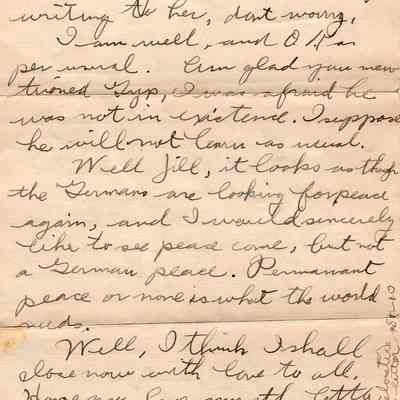 writing to her, dont worry,
I am well, and O.K. as
per usual. Am glad you men
tioned Gyp, I was afraid he
was not in existence. I suppose
he will not learn as usual.
Well Jill, it looks as though
the Germans are looking for peace
again, and I would sincerely
like to see peace come, but not
a German peace. Permanant
peace or none is what the world
needs.
Well, I think I shall
close now with love to all.